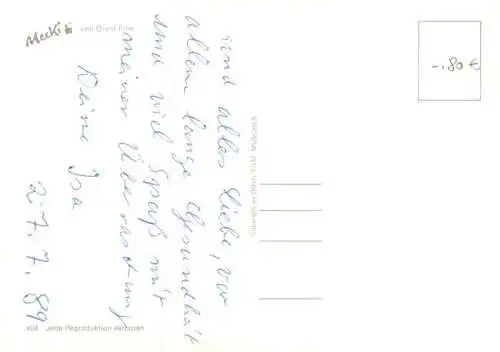 Mecki von Diehl Film
-.80 €
und alles Liebe, vor
allem lange Gesundheit
und viel Spaß mit
meiner Überraschung
Deine Isa
27.7.89
Copyright
468 Jede Reproduktion verboten